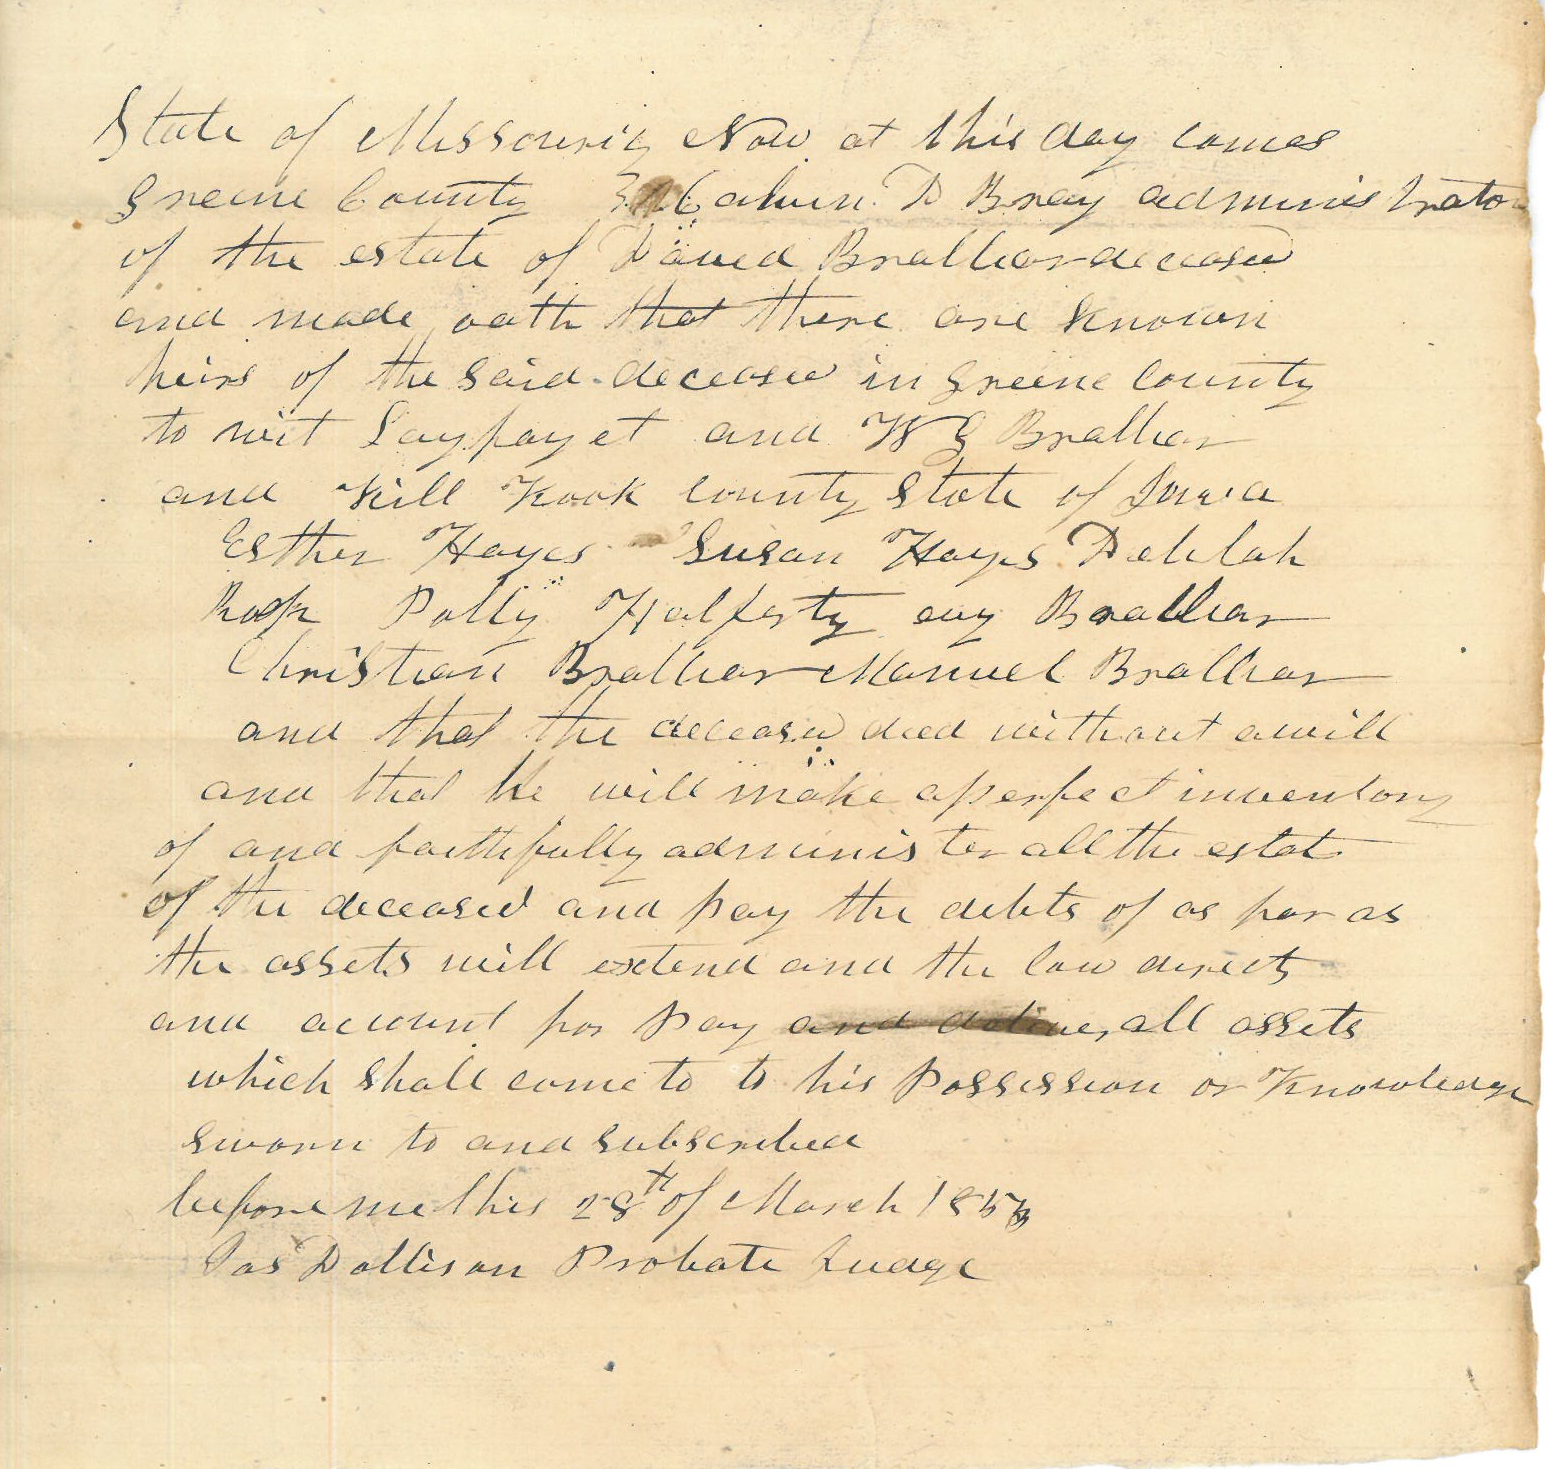 State of Missouri } Now at this day comes
Greene County } Calvin D Bray administrator
of the estate of David Brallier deceased
and made oath that there are known
heirs of the said deceased in Greene County
to wit Layfayet and W G Brallier
and Kill Kook County State of Iowa
Esther Hayes Susan Hayes Delilah
Polly Halferty Brallier
Christian Brallier Manuel Brallier
and that the deceased died without a will
and that he will make a perfect inventory
of and faithfully administer all the estate
of the deceased and pay the debts of as far as
the assets will extend and the law directs
and account for pay and deliver all assets
which shall come to to his Possession or Knowledge
sworn to and subscribed
before me this 28th of March
Jas Dollison Probate Judge